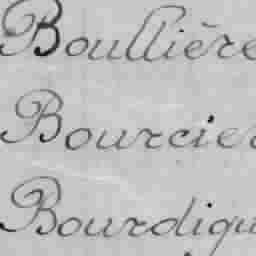 Boullière
Bourcier
Bourdigu